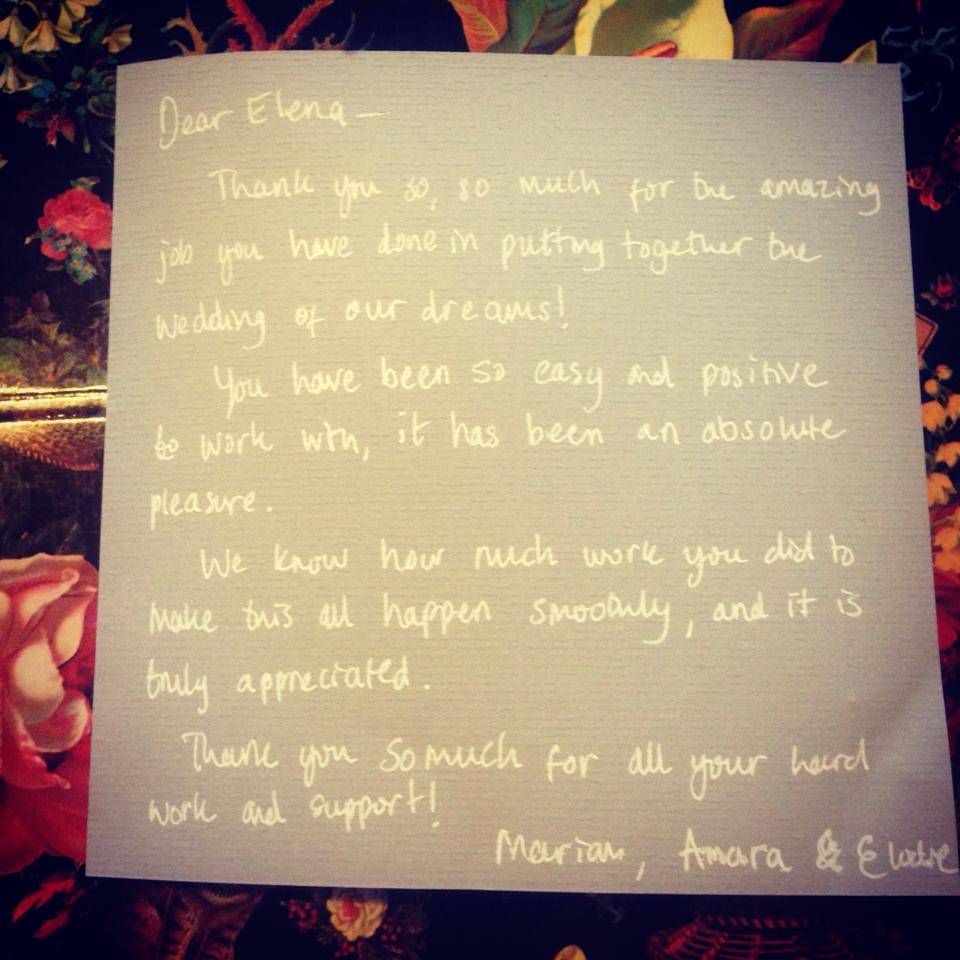 Dear Elena —
Thank you so, so much for the amazing
job you have done in putting together the
wedding of our dreams!
You have been so easy and positive
to work with, it has been an absolute
pleasure.
We know how much work you did to
make this all happen smoothly, and it is
truly appreciated.
Thank you so much for all your hard
work and support!
Mariam, Amara &